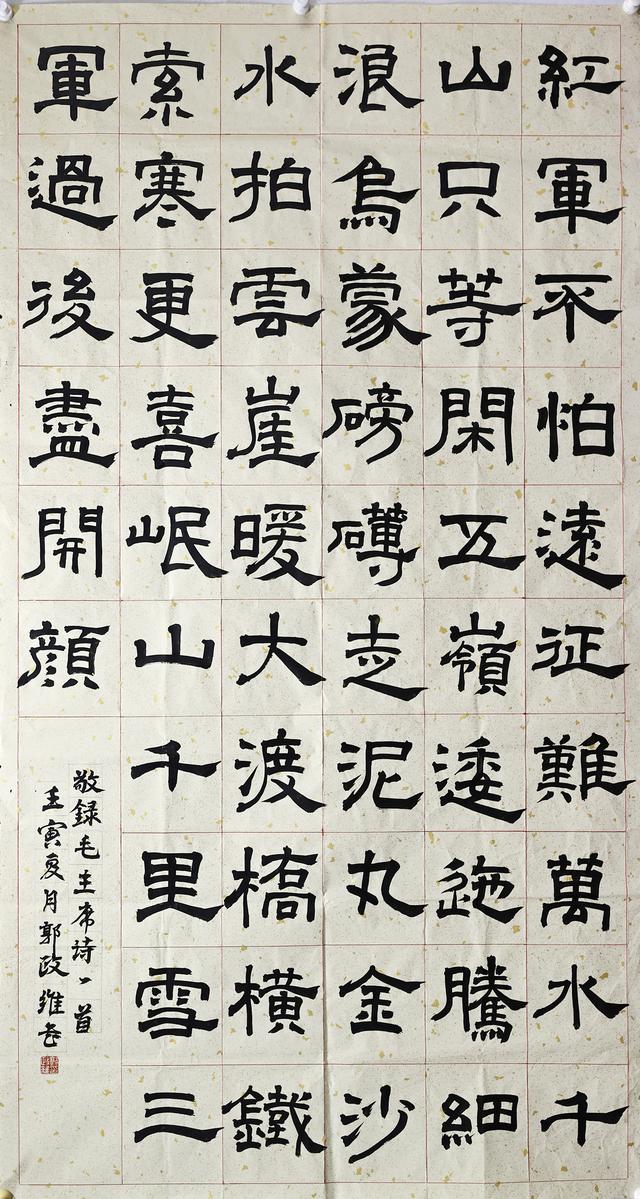 紅軍不怕遠征難萬水千
山只等閑五嶺逶迤騰細
浪烏蒙磅礡走泥丸金沙
水拍雲崖暖大渡橋橫鐵
索寒更喜岷山千里雪三
軍過後盡開顏
敬録毛主席诗一首
壬寅夏月郭政維书